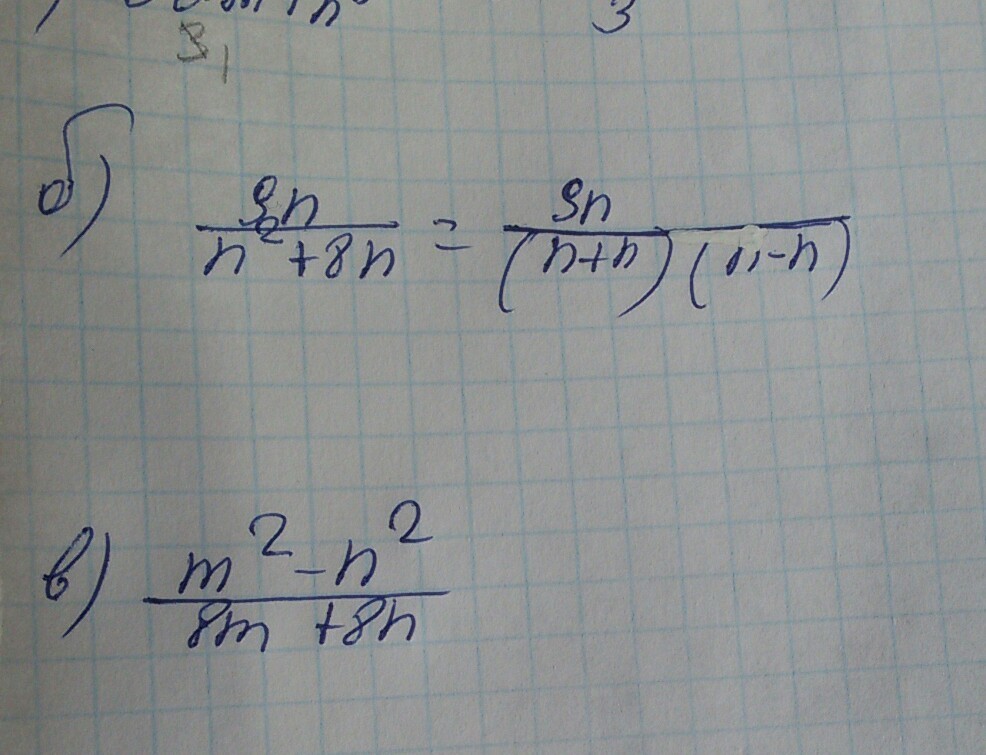 3
8
б) 9n / (n² + 8n) = 9n / ((n+n)(n-n))
в) (m² - n²) / (8m + 8n)